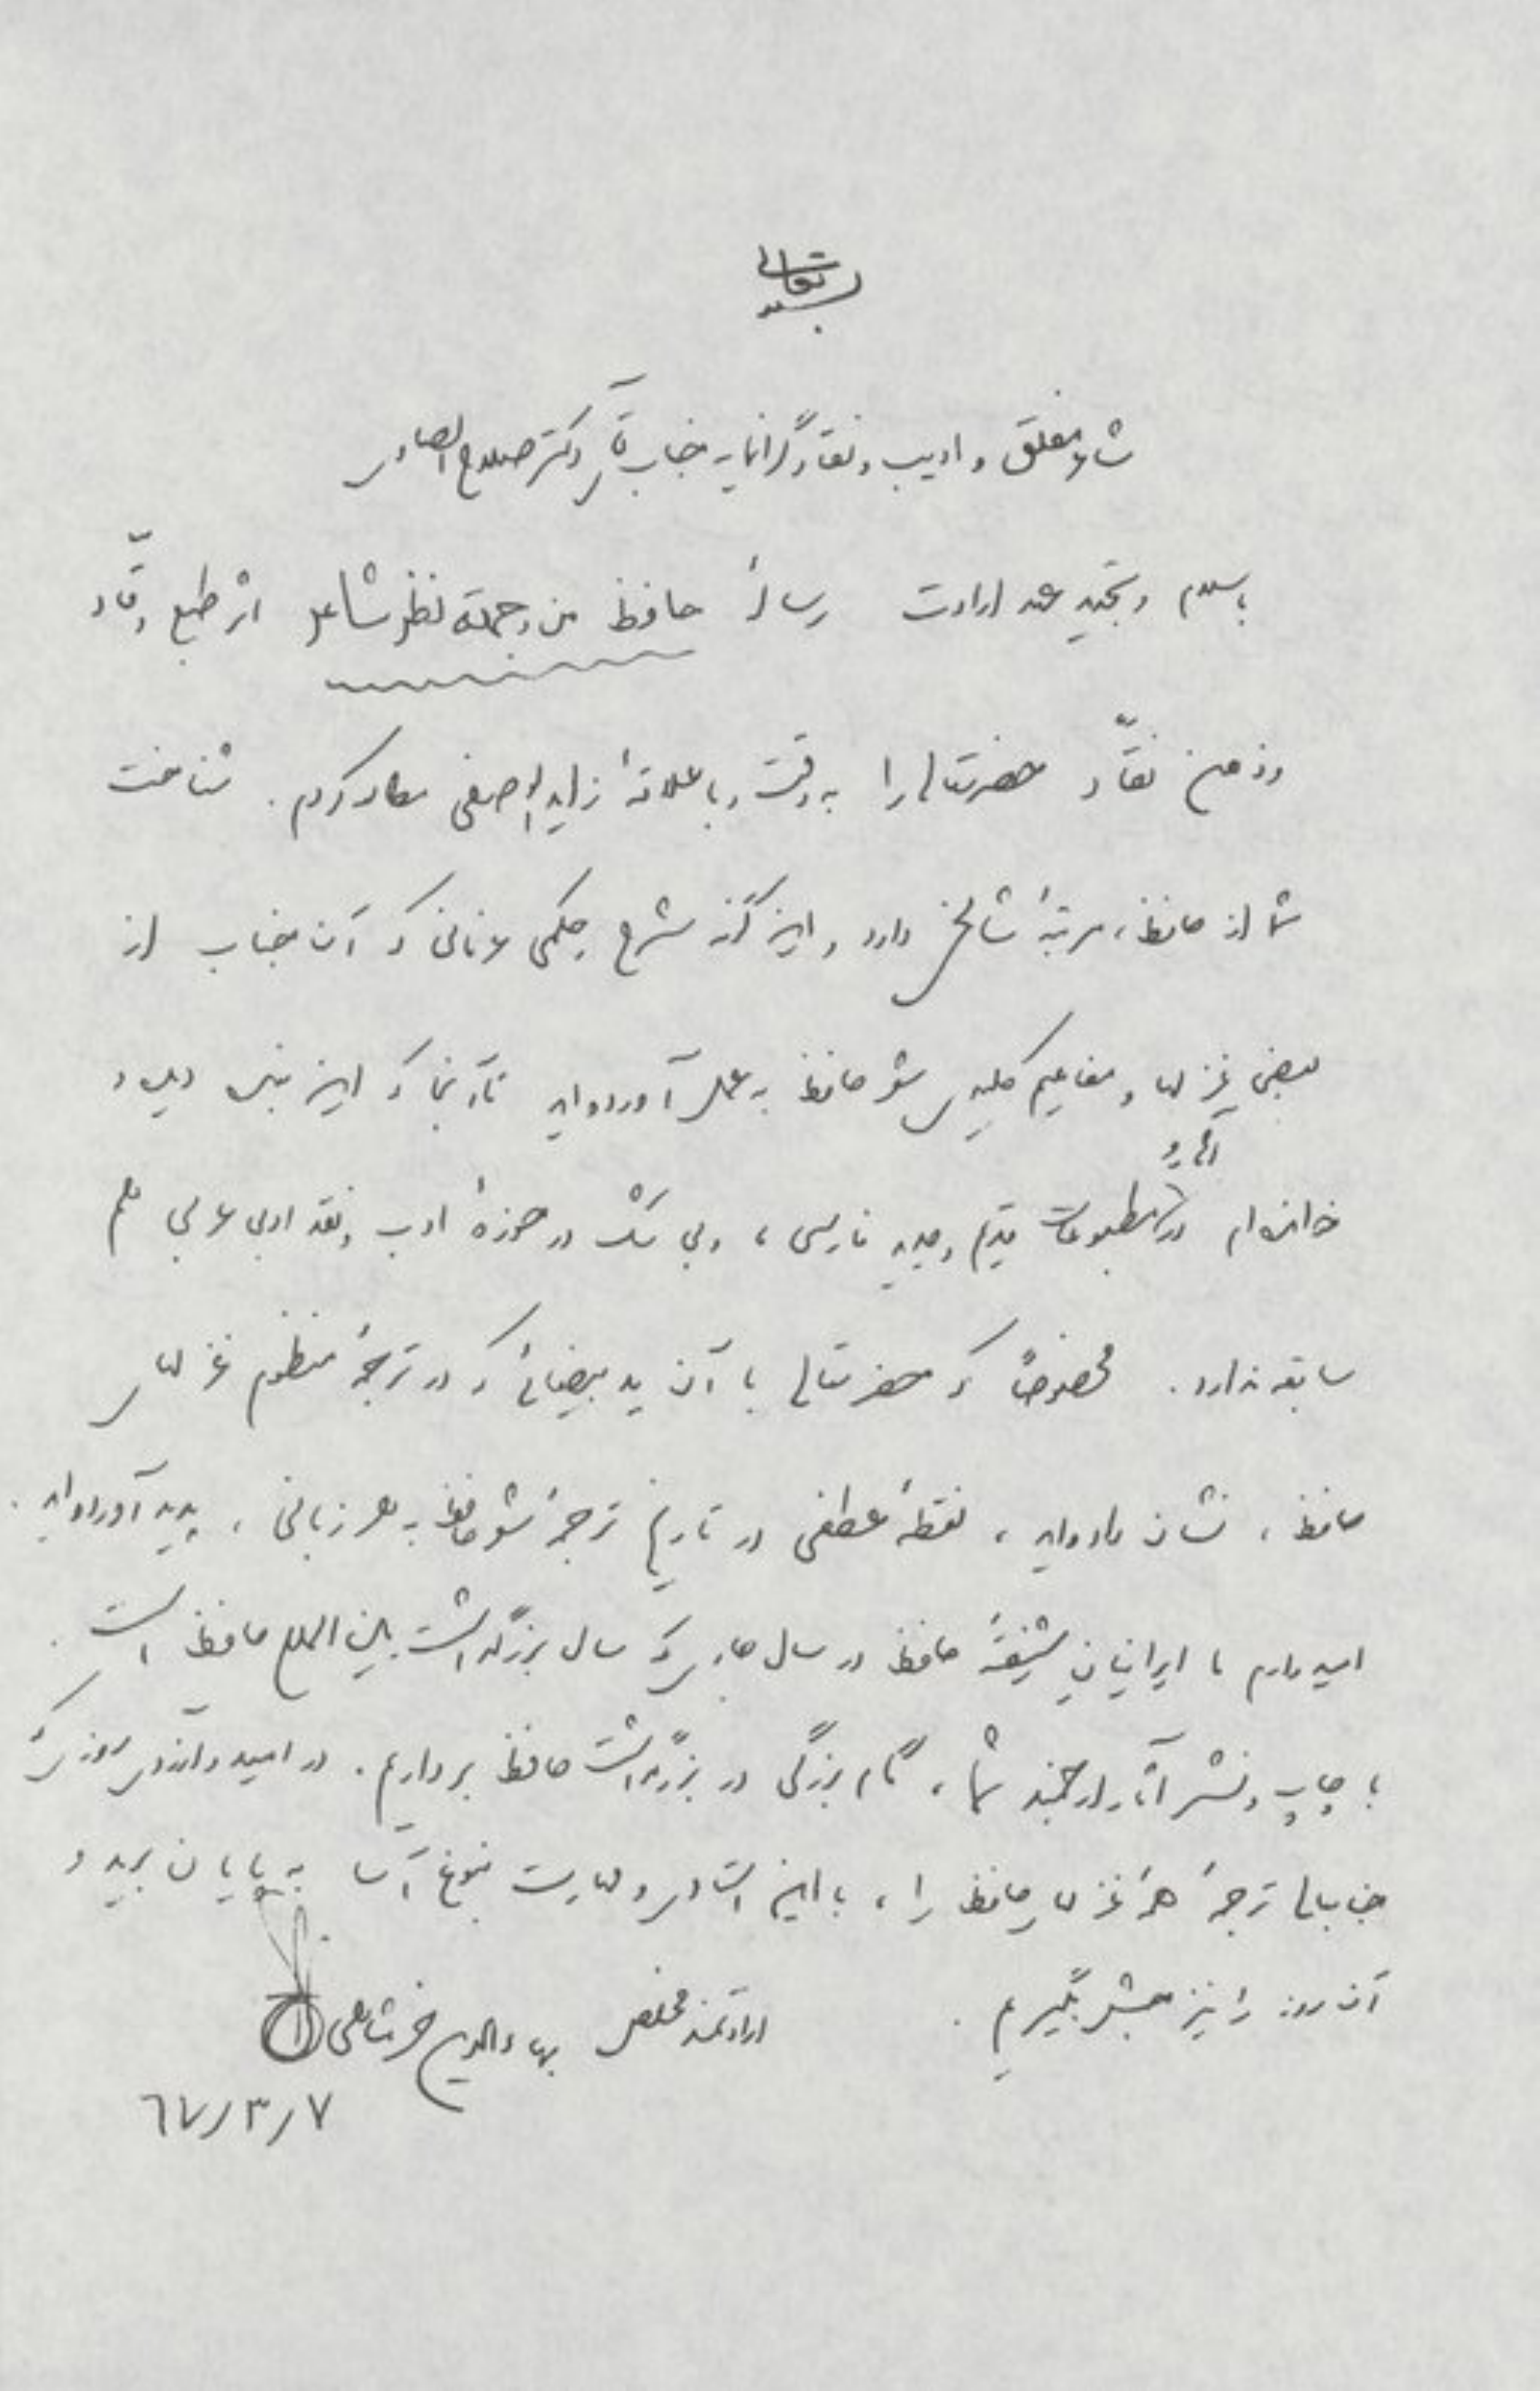 بسمه تعالی
شاعر مفلق و ادیب و نقاد گرانمایه جناب آقای دکتر صلاح الصاوی
با سلام و تجدید عهد ارادت رسالهٔ حافظ من وجهة نظر شاعر اثر طبع وقّاد
و ذهن نقّاد حضرتعالی را به دقت و با علاقهٔ زاید الوصفی مطالعه کردم. شناخت
شما از حافظ، مرتبهٔ شامخی دارد و این گونه شرح حکمی عرفانی که آن جناب از
بعضی غزلها و مفاهیم کلیدی شعر حافظ به عمل آورده‌اید تا آنجا که این بنده دیده و
خوانده‌ام در آثار و مطبوعات قدیم و جدید فارسی، و بی شک در حوزهٔ ادب و نقد ادبی عربی هم
سابقه ندارد. مخصوصاً که حضرتعالی با آن ید بیضائی که در ترجمهٔ منظوم غزلهای
حافظ، نشان داده‌اید، نقطهٔ عطفی در تاریخ ترجمهٔ شعر حافظ به هر زبانی، پدید آورده‌اید.
امیدوارم ما ایرانیانِ شیفتهٔ حافظ در سال جاری که سال بزرگداشت بین المللی حافظ است.
با چاپ و نشر آثار ارجمند شما، گام بزرگی در بزرگداشت حافظ برداریم. در امید و آرزوی روزی که
جنابعالی ترجمهٔ همهٔ غزلهای حافظ را، با این استادی و مهارت نبوغ آسا به پایان برید و
آن روز را نیز جشن بگیریم.
ارادتمند مخلص بهاءالدین خرمشاهی
٦٧/٣/٧